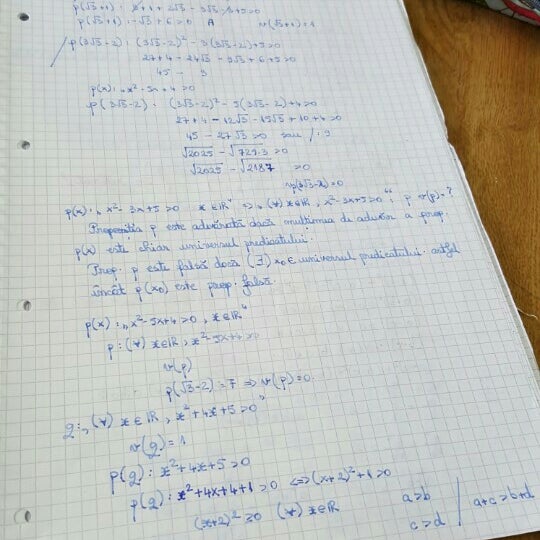 p(√3+1): 3+1+2√3-3√3-3+5>0
p(√3+1): -√3+6>0 A v(√3+1)=1
p(3√3-2): (3√3-2)²-3(3√3-2)+5>0
27+4-24√3-9√3+6+5>0
45 -
p(x): „x²-5x+4>0
p(3√3-2): (3√3-2)²-5(3√3-2)+4>0
27+4-12√3-15√3+10+4>0
45-27√3>0 sau /:9
√2025-√729·3>0
√2025-√2187 >0
v(3√3-2)=0
p(x): „x²-3x+5>0 x∈ℝ" <=> „(∀) x∈ℝ, x²-3x+5>0" p v(p)=?
Propoziția p este adevărată dacă mulțimea de adevăr a prop.
p(x) este chiar universul predicatului.
Prop. p este falsă dacă (∃) x₀∈ universul predicatului astfel
încât p(x₀) este prop. falsă.
p(x): „x²-5x+4>0, x∈ℝ"
p: (∀) x∈ℝ, x²-5x+4>0
v(p)
p(√3-2)=F => v(p)=0.
q: „(∀) x∈ℝ, x²+4x+5>0"
v(q)=1
p(q): x²+4x+5>0
p(q): x²+4x+4+1>0 <=> (x+2)²+1>0
(x+2)²≥0 (∀) x∈ℝ
a>b / a+c>b+d
c>d